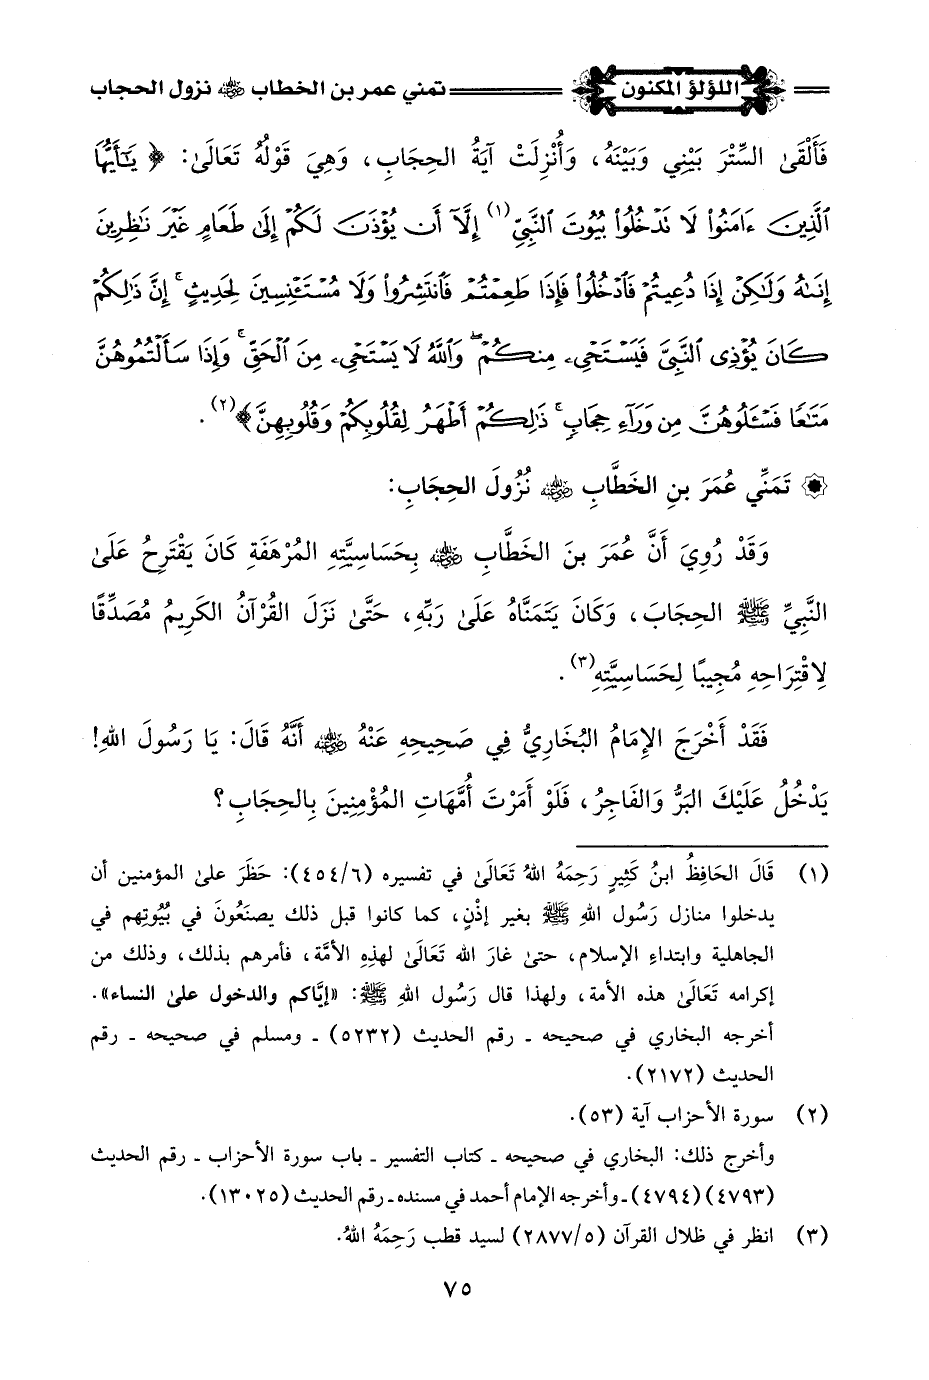 اللؤلؤ المكنون تمني عمر بن الخطاب ﵁ نزول الحجاب
فَأَلْقَىٰ السِّتْرَ بَيْنِي وَبَيْنَهُ، وَأُنْزِلَتْ آيَةُ الحِجَابِ، وَهِيَ قَوْلُهُ تَعَالَىٰ: ﴿يَـٰٓأَيُّهَا
ٱلَّذِينَ ءَامَنُوا۟ لَا تَدْخُلُوا۟ بُيُوتَ ٱلنَّبِىِّ(١) إِلَّآ أَن يُؤْذَنَ لَكُمْ إِلَىٰ طَعَامٍ غَيْرَ نَـٰظِرِينَ
إِنَىٰهُ وَلَـٰكِنْ إِذَا دُعِيتُمْ فَٱدْخُلُوا۟ فَإِذَا طَعِمْتُمْ فَٱنتَشِرُوا۟ وَلَا مُسْتَـْٔنِسِينَ لِحَدِيثٍ ۚ إِنَّ ذَٰلِكُمْ
كَانَ يُؤْذِى ٱلنَّبِىَّ فَيَسْتَحْىِۦ مِنكُمْ ۖ وَٱللَّهُ لَا يَسْتَحْىِۦ مِنَ ٱلْحَقِّ ۚ وَإِذَا سَأَلْتُمُوهُنَّ
مَتَـٰعًا فَسْـَٔلُوهُنَّ مِن وَرَآءِ حِجَابٍ ۚ ذَٰلِكُمْ أَطْهَرُ لِقُلُوبِكُمْ وَقُلُوبِهِنَّ﴾(٢).
۞ تَمَنِّي عُمَرَ بنِ الخَطَّابِ ﵁ نُزُولَ الحِجَابِ:
وَقَدْ رُوِيَ أَنَّ عُمَرَ بنَ الخَطَّابِ ﵁ بِحَسَاسِيَّتِهِ المُرْهَفَةِ كَانَ يَقْتَرِحُ عَلَىٰ
النَّبِيِّ ﷺ الحِجَابَ، وَكَانَ يَتَمَنَّاهُ عَلَىٰ رَبِّهِ، حَتَّىٰ نَزَلَ القُرْآنُ الكَرِيمُ مُصَدِّقًا
لِاقْتِرَاحِهِ مُجِيبًا لِحَسَاسِيَّتِهِ(٣).
فَقَدْ أَخْرَجَ الإِمَامُ البُخَارِيُّ فِي صَحِيحِهِ عَنْهُ ﵁ أَنَّهُ قَالَ: يَا رَسُولَ اللهِ!
يَدْخُلُ عَلَيْكَ البَرُّ وَالفَاجِرُ، فَلَوْ أَمَرْتَ أُمَّهَاتِ المُؤْمِنِينَ بِالحِجَابِ؟
(١) قَالَ الحَافِظُ ابنُ كَثِيرٍ رَحِمَهُ اللهُ تَعَالَىٰ في تفسيره (٤٥٤/٦): حَظَرَ علىٰ المؤمنين أن
يدخلوا منازل رَسُول اللهِ ﷺ بغير إذْنٍ، كما كانوا قبل ذلك يصنَعُونَ في بُيُوتِهم في
الجاهلية وابتداءِ الإسلام، حتىٰ غارَ الله تَعَالَىٰ لهذِهِ الأمَّة، فأمرهم بذلك، وذلك من
إكرامه تَعَالَىٰ هذه الأمة، ولهذا قال رَسُول اللهِ ﷺ: «إيَّاكم والدخول علىٰ النساء».
أخرجه البخاري في صحيحه ـ رقم الحديث (٥٢٣٢) ـ ومسلم في صحيحه ـ رقم
الحديث (٢١٧٢).
(٢) سورة الأحزاب آية (٥٣).
وأخرج ذلك: البخاري في صحيحه ـ كتاب التفسير ـ باب سورة الأحزاب ـ رقم الحديث
(٤٧٩٣) (٤٧٩٤) ـ وأخرجه الإمام أحمد في مسنده ـ رقم الحديث (١٣٠٢٥).
(٣) انظر في ظلال القرآن (٢٨٧٧/٥) لسيد قطب رَحِمَهُ اللهُ.
٧٥